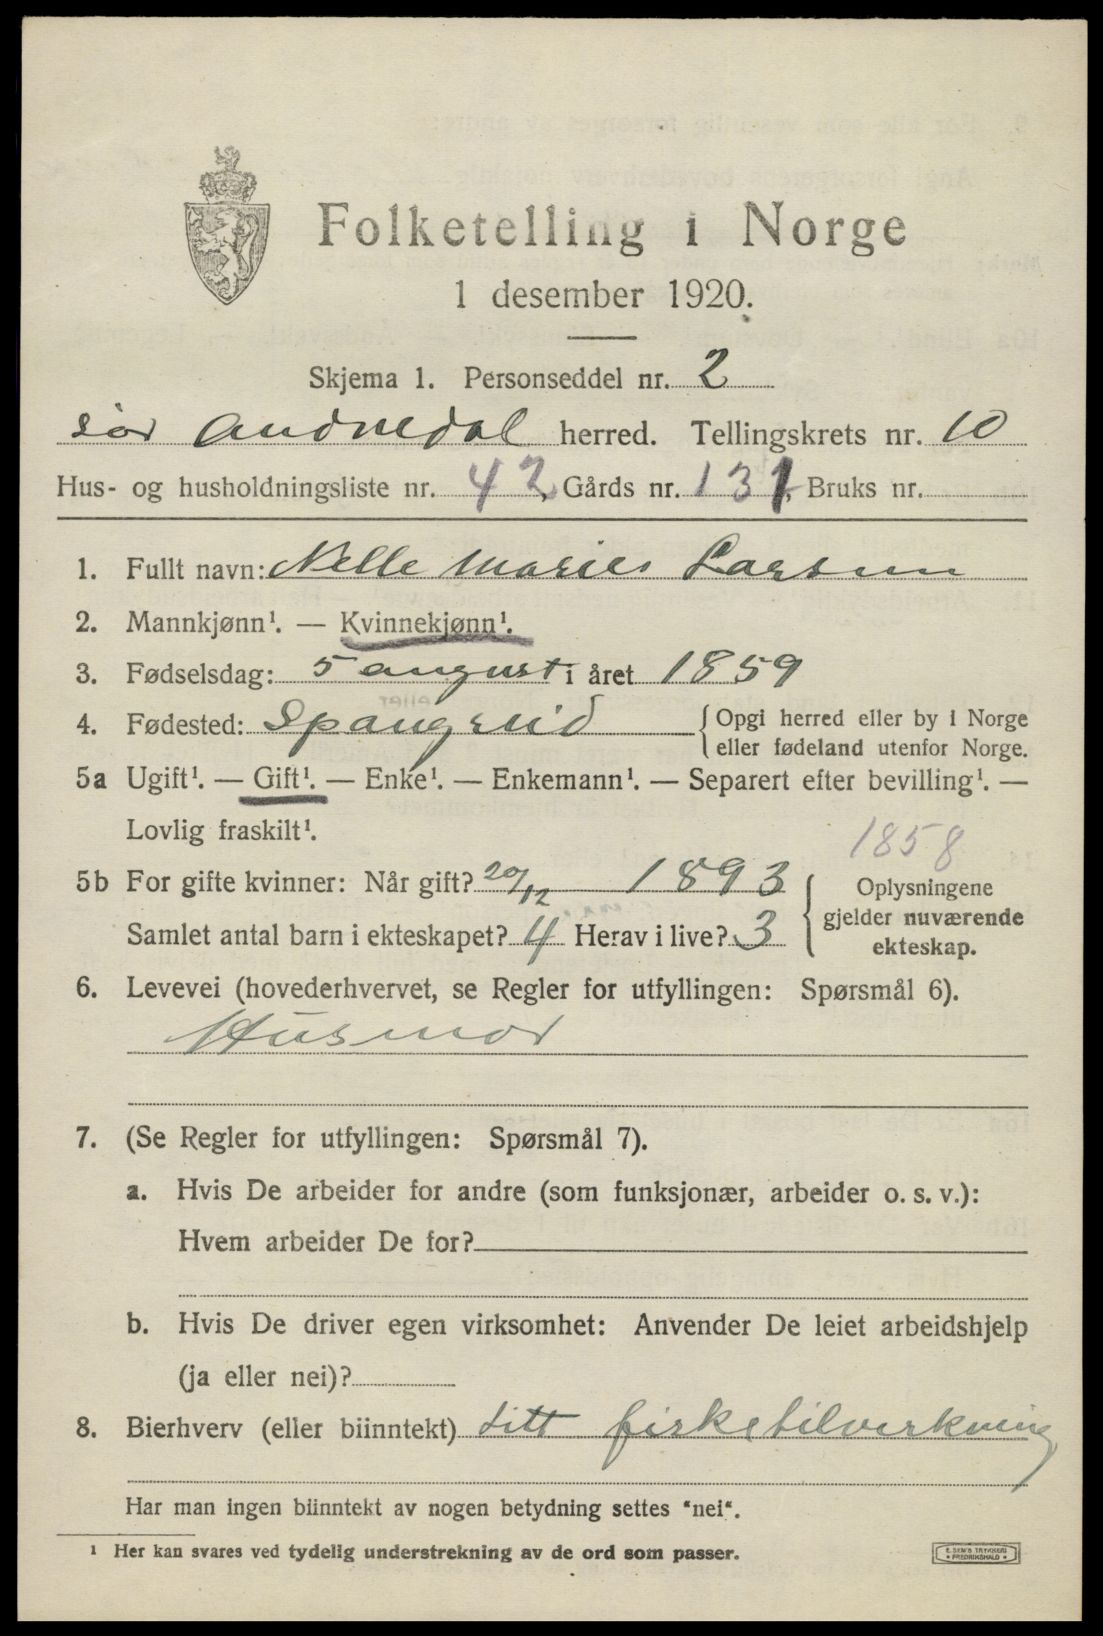 Folketelling i Norge
1 desember 1920.
Skjema 1. Personseddel nr. 2
Sør Audnedal herred. Tellingskrets nr. 10
Hus- og husholdningsliste nr. 42, Gårds nr. 131, Bruks nr.
1. Fullt navn: Nelle Larsen
2. Mannkjønn¹. — Kvinnekjønn¹.
3. Fødselsdag: 5 august i året 1859
4. Fødested: Spangreid {Opgi herred eller by i Norge
eller fødeland utenfor Norge.
5a Ugift¹. — Gift¹. — Enke¹. — Enkemann¹. — Separert efter bevilling¹. —
Lovlig fraskilt¹.
1858
5b For gifte kvinner: Når gift? 20/12 1893 { Oplysningene
gjelder nuværende
Samlet antal barn i ekteskapet? 4 Herav i live? 3
ekteskap.
6. Levevei (hovederhvervet, se Regler for utfyllingen: Spørsmål 6).
Husmor
7. (Se Regler for utfyllingen: Spørsmål 7).
a. Hvis De arbeider for andre (som funksjonær, arbeider o. s. v.):
Hvem arbeider De for?
b. Hvis De driver egen virksomhet: Anvender De leiet arbeidshjelp
(ja eller nei)?
8. Bierhverv (eller biinntekt) Litt fisketilverkning
Har man ingen biinntekt av nogen betydning settes "nei".
¹ Her kan svares ved tydelig understrekning av de ord som passer.
E. SEM'S TRYKKERI
FREDRIKSHALD